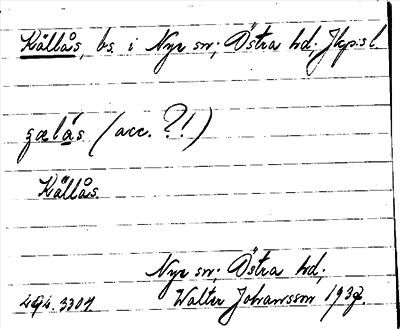 Källås, bs. i Nye sn; Östra hd; Jkp:s l.
gælås (acc. ?!)
Källås.
Nye sn; Östra hd;
494.3304 Walter Johansson 1932.